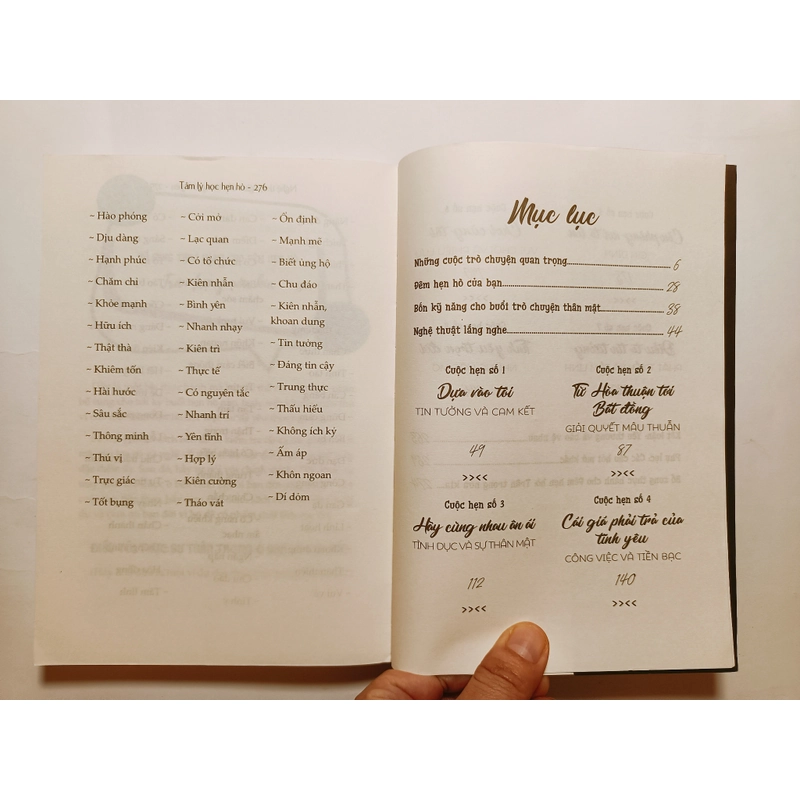 Tâm lý học hẹn hò - 276
- Hào phóng
- Dịu dàng
- Hạnh phúc
- Chăm chỉ
- Khỏe mạnh
- Hữu ích
- Thật thà
- Khiêm tốn
- Hài hước
- Sâu sắc
- Thông minh
- Thú vị
- Trực giác
- Tốt bụng
- Cởi mở
- Lạc quan
- Có tổ chức
- Kiên nhẫn
- Bình yên
- Nhanh nhạy
- Kiên trì
- Thực tế
- Có nguyên tắc
- Nhanh trí
- Yên tĩnh
- Hợp lý
- Kiên cường
- Tháo vát
- Ổn định
- Mạnh mẽ
- Biết ủng hộ
- Chu đáo
- Kiên nhẫn,
khoan dung
- Tin tưởng
- Đáng tin cậy
- Trung thực
- Thấu hiểu
- Không ích kỷ
- Ấm áp
- Khôn ngoan
- Dí dỏm
Mục lục
Những cuộc trò chuyện quan trọng 6
Đêm hẹn hò của bạn 28
Bốn kỹ năng cho buổi trò chuyện thân mật 38
Nghệ thuật lắng nghe 44
Cuộc hẹn số 1
Dựa vào tôi
TIN TƯỞNG VÀ CAM KẾT
49
>><<
Cuộc hẹn số 2
Từ Hòa thuận tới
Bất đồng
GIẢI QUYẾT MÂU THUẪN
87
>><<
Cuộc hẹn số 3
Hãy cùng nhau ân ái
TÌNH DỤC VÀ SỰ THÂN MẬT
112
>><<
Cuộc hẹn số 4
Cái giá phải trả của
tình yêu
CÔNG VIỆC VÀ TIỀN BẠC
140
>><<